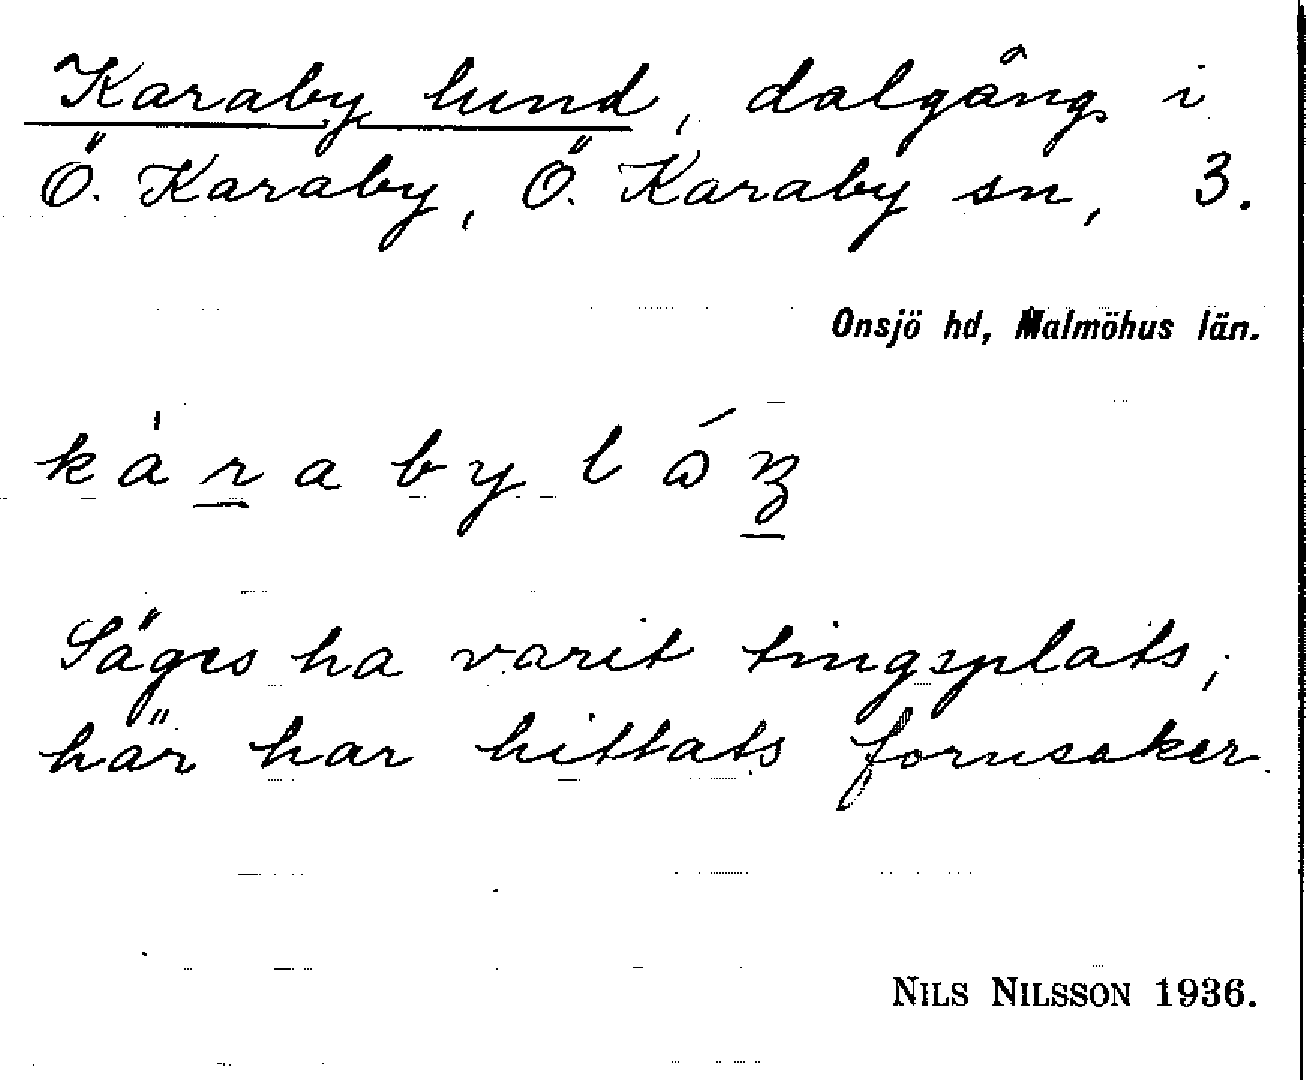 Karaby lund, dalgång i
Ö. Karaby, Ö. Karaby sn, 3.
Onsjö hd, Malmöhus län.
Säges ha varit tingsplats,
här har hittats fornsaker
NILS NILSSON 1936.